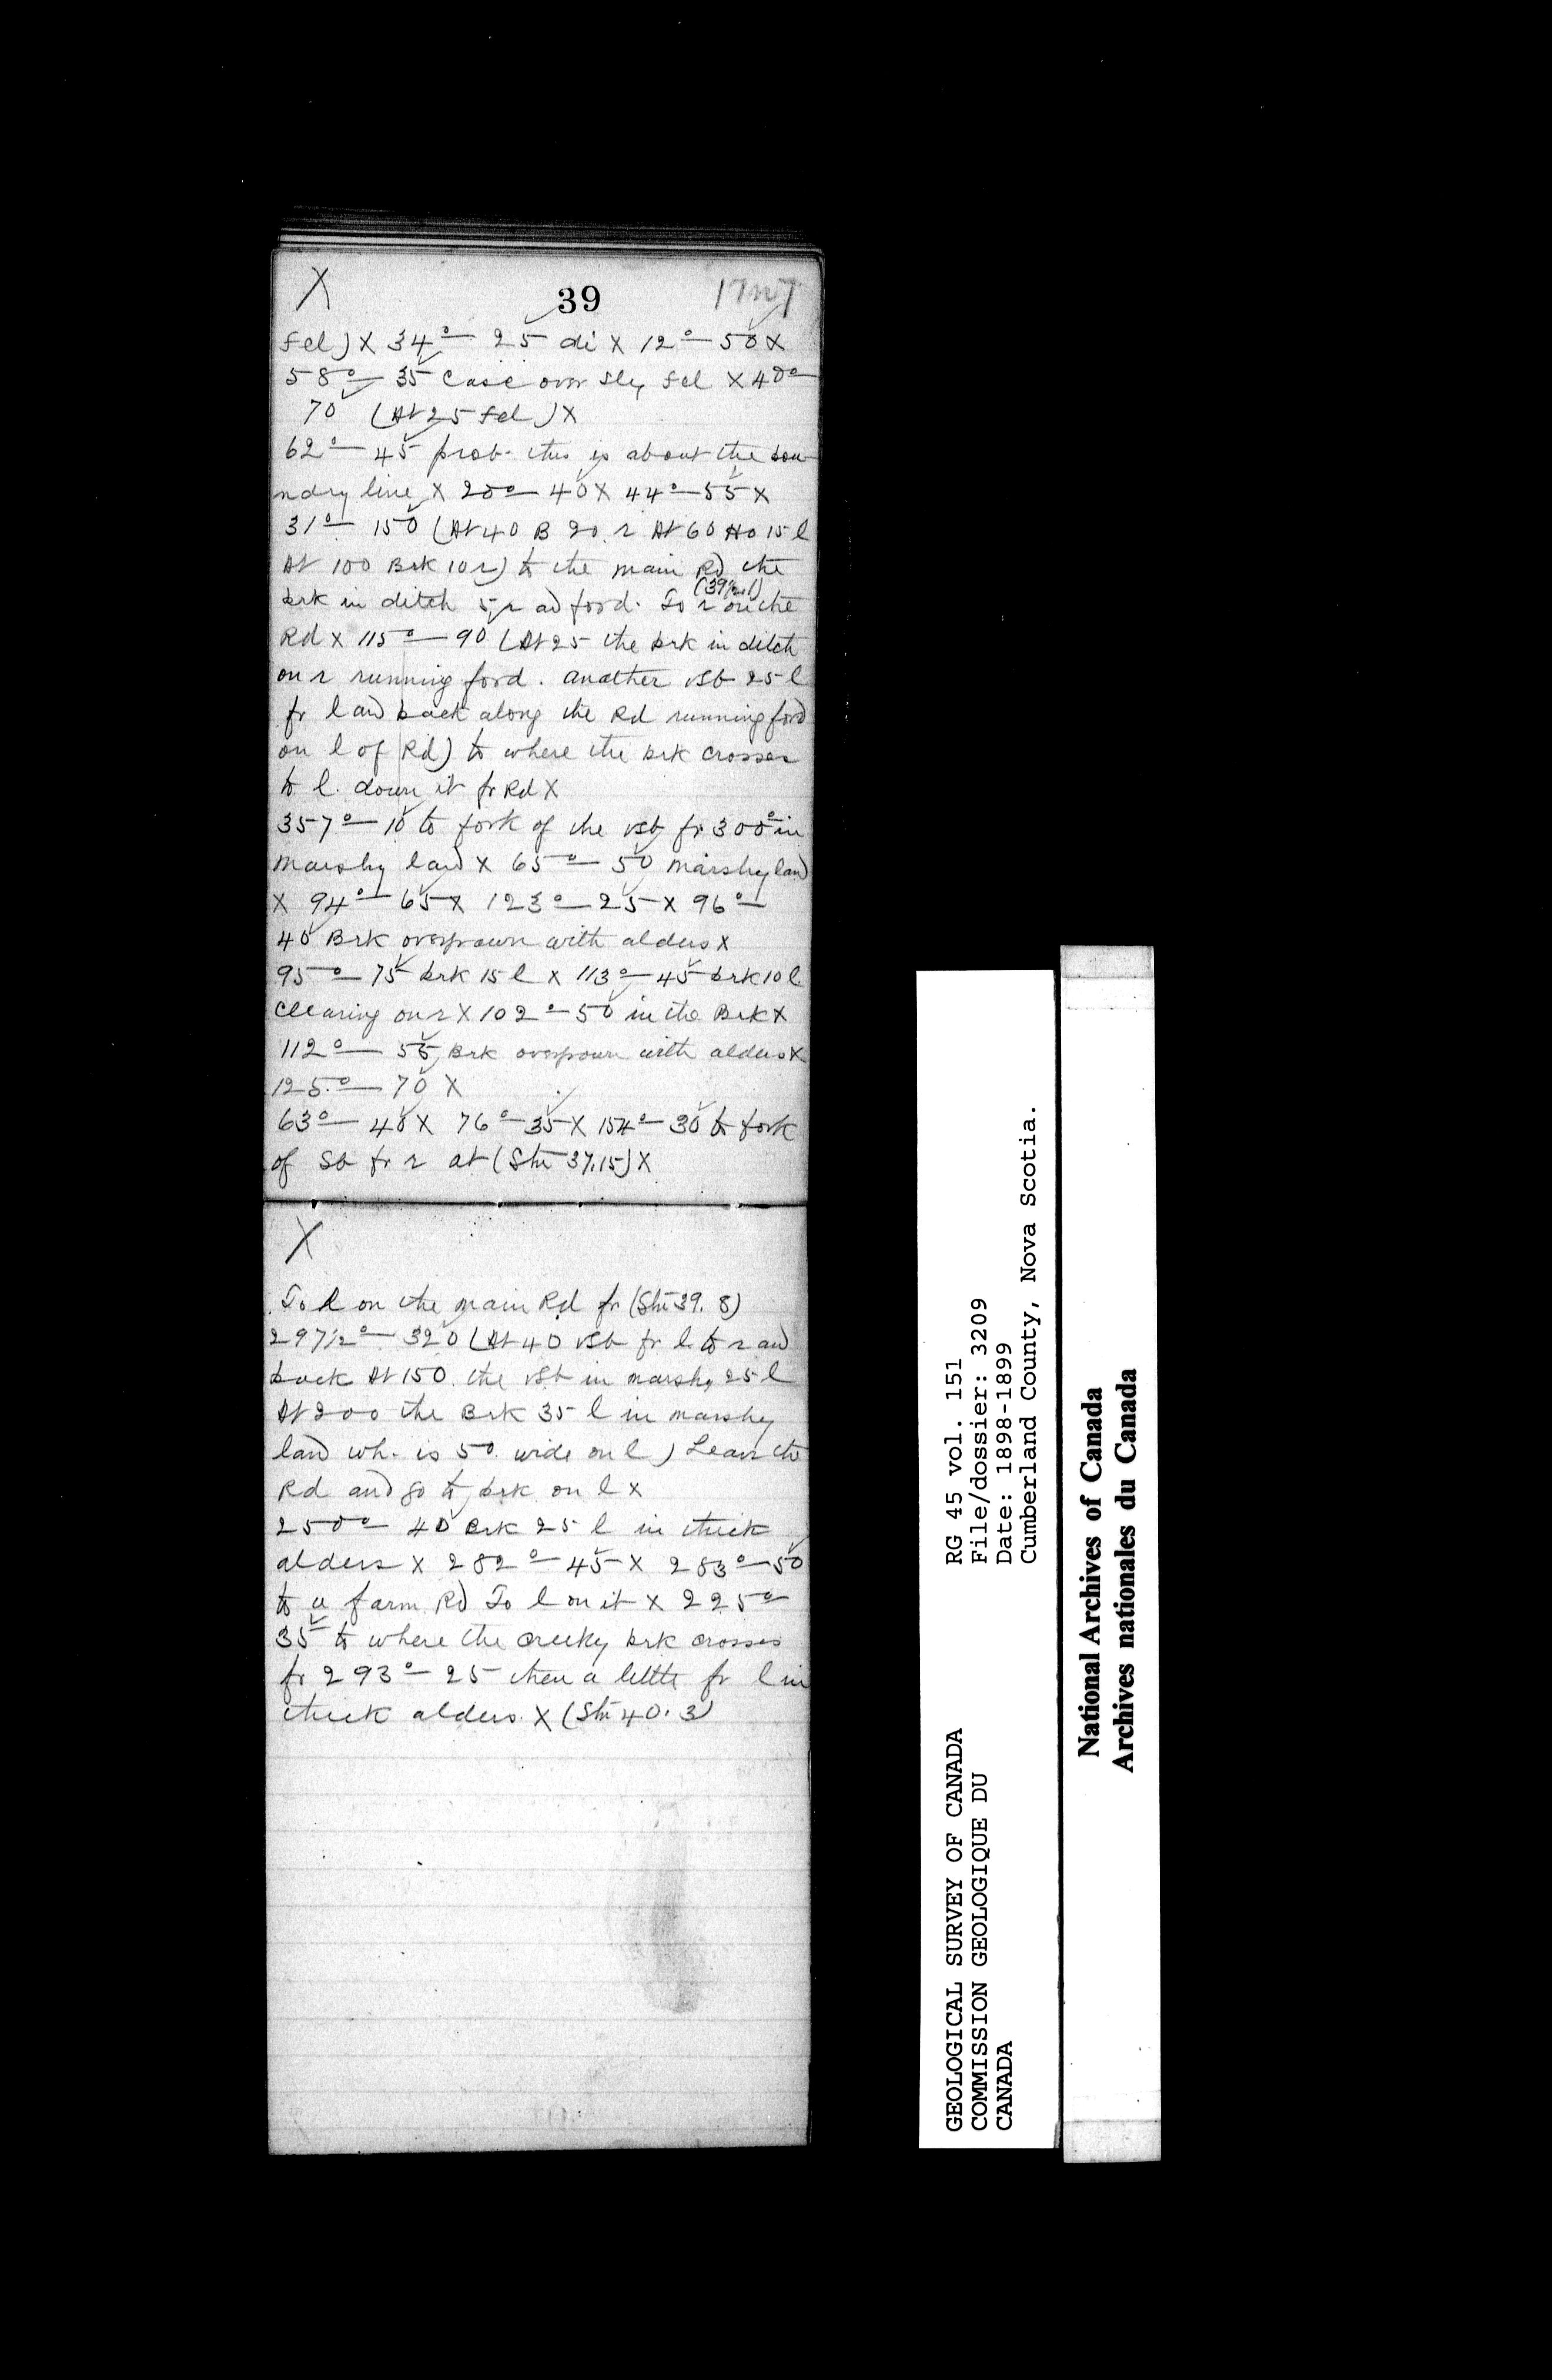 X 39
fel) X 34° — 25 di X 12° — 50 X
58° — 35 Casc over sly fel X 40° —
70 (At 25 fel) X
62° — 45 prob. this is about the bou-
ndry line X 20° — 40 X 44° — 55 X
31° — 150 (At 40 B 20 r At 60 Ho 15 l
At 100 Brk 10 r) to the main Rd the
(39½.1)
brk in ditch 5 r and ford. To r on the
Rd X 115° — 90 (At 25 the brk in ditch
on r running ford. another vsb 25 l
fr l and back along the Rd running ford
on l of Rd) to where the brk crosses
to l. down it fr Rd X
357° — 10 to fork of the vsb fr 300° in
marshy land X 65° — 50 marshy land
X 94° — 65 X 123° — 25 X 96° —
40 Brk overgrown with alders X
95° — 75 brk 15 l X 113° — 45 brk 10 l
Clearing on r X 102° — 50 in the Brk X
112° — 55 Brk overgrown with alders X
125° — 70 X
63° — 40 X 76° — 35 X 154° — 30 to fork
of Sb fr r at (Stn 37.15) X
X
To l on the main Rd fr (Stn 39. 8)
297½° — 320 (At 40 vsb fr l to r and
back At 150 the vsb in marshy 25 l
At 200 the Brk 35 l in marshy
land wh. is 50 wide on l) Leave the
Rd and go to brk on l X
250° — 40 Brk 25 l in thick
alders X 282° — 45 X 283° — 50
to a farm Rd To l on it X 225° —
35 to where the creeky brk crosses
fr 293° — 25 then a little fr l in
thick alders X (Stn 40. 3)
GEOLOGICAL SURVEY OF CANADA
COMMISSION GEOLOGIQUE DU
CANADA
RG 45 vol. 151
File/dossier: 3209
Date: 1898-1899
Cumberland County, Nova Scotia.
National Archives of Canada
Archives nationales du Canada